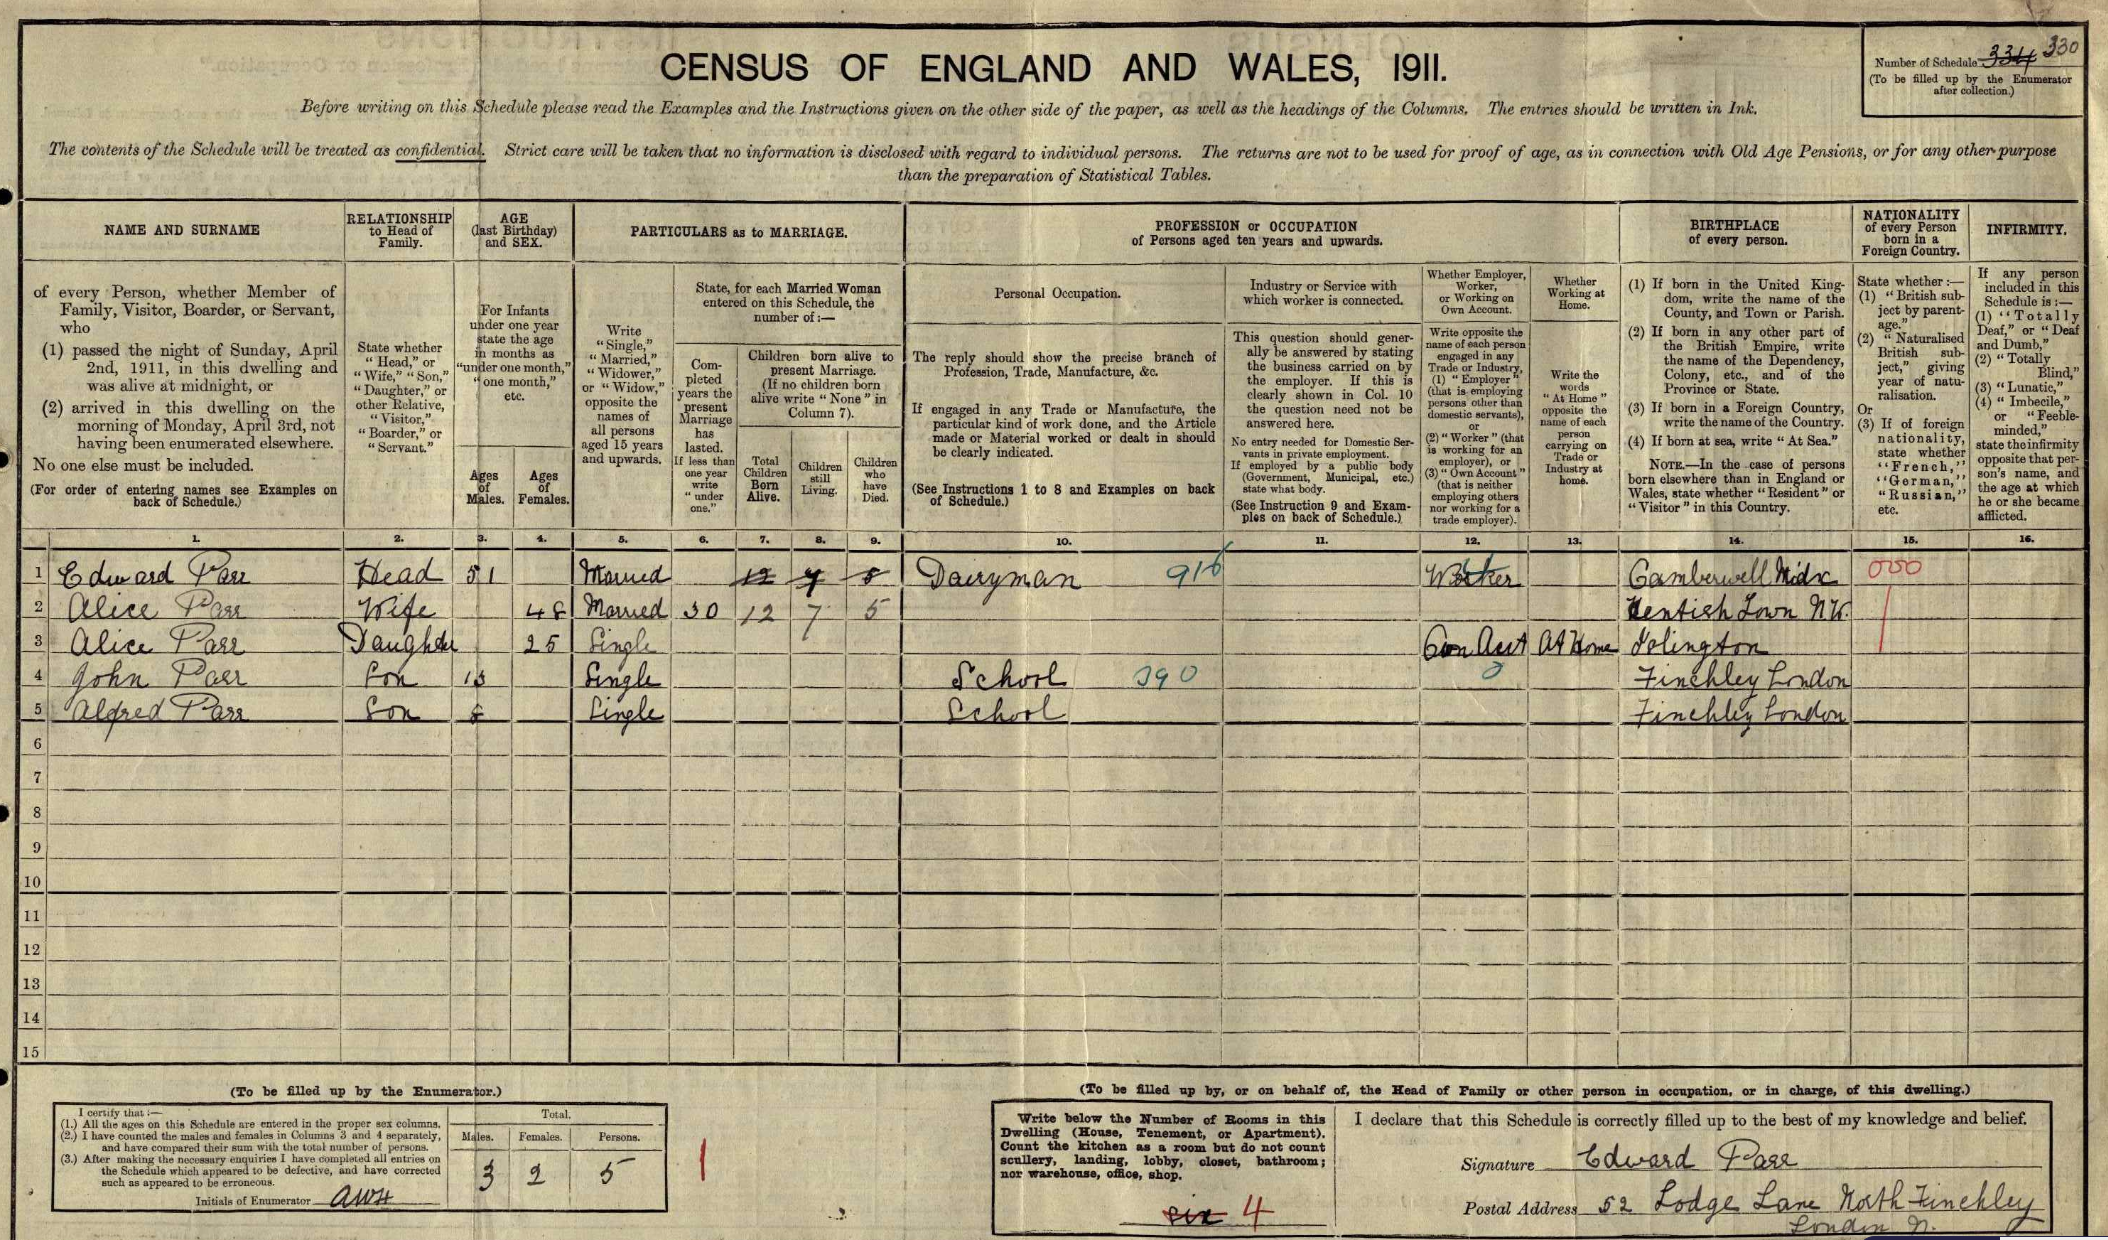 CENSUS OF ENGLAND AND WALES, 1911.
Number of Schedule 334 330
(To be filled up by the Enumerator
after collection.)
Before writing on this Schedule please read the Examples and the Instructions given on the other side of the paper, as well as the headings of the Columns. The entries should be written in Ink.
The contents of the Schedule will be treated as confidential. Strict care will be taken that no information is disclosed with regard to individual persons. The returns are not to be used for proof of age, as in connection with Old Age Pensions, or for any other purpose
than the preparation of Statistical Tables.
NAME AND SURNAME
of every Person, whether Member of
Family, Visitor, Boarder, or Servant,
who
(1) passed the night of Sunday, April
2nd, 1911, in this dwelling and
was alive at midnight, or
(2) arrived in this dwelling on the
morning of Monday, April 3rd, not
having been enumerated elsewhere.
No one else must be included.
(For order of entering names see Examples on
back of Schedule.)
RELATIONSHIP
to Head of
Family.
State whether
"Head," or
"Wife," "Son,"
"Daughter," or
other Relative,
"Visitor,"
"Boarder," or
"Servant."
AGE
(last Birthday)
and SEX.
For Infants
under one year
state the age
in months as
"under one month,"
"one month,"
etc.
Ages
of
Males.
Ages
of
Females.
PARTICULARS as to MARRIAGE.
Write
"Single,"
"Married,"
"Widower,"
or "Widow,"
opposite the
names of
all persons
aged 15 years
and upwards.
State, for each Married Woman
entered on this Schedule, the
number of:—
Com-
pleted
years the
present
Marriage
has
lasted.
If less than
one year
write
"under
one."
Children born alive to
present Marriage.
(If no children born
alive write "None" in
Column 7).
Total
Children
Born
Alive.
Children
still
Living.
Children
who
have
Died.
PROFESSION or OCCUPATION
of Persons aged ten years and upwards.
Personal Occupation.
The reply should show the precise branch of
Profession, Trade, Manufacture, &c.
If engaged in any Trade or Manufacture, the
particular kind of work done, and the Article
made or Material worked or dealt in should
be clearly indicated.
(See Instructions 1 to 8 and Examples on back
of Schedule.)
Industry or Service with
which worker is connected.
This question should gener-
ally be answered by stating
the business carried on by
the employer. If this is
clearly shown in Col. 10
the question need not be
answered here.
No entry needed for Domestic Ser-
vants in private employment.
If employed by a public body
(Government, Municipal, etc.)
state what body.
(See Instruction 9 and Exam-
ples on back of Schedule.)
Whether Employer,
Worker,
or Working on
Own Account.
Write opposite the
name of each person
engaged in any
Trade or Industry,
(1) "Employer"
(that is employing
persons other than
domestic servants),
or
(2) "Worker" (that
is working for an
employer), or
(3) "Own Account"
(that is neither
employing others
nor working for a
trade employer).
Whether
Working at
Home.
Write the
words
"At Home"
opposite the
name of each
person
carrying on
Trade or
Industry at
home.
BIRTHPLACE
of every person.
(1) If born in the United King-
dom, write the name of the
County, and Town or Parish.
(2) If born in any other part of
the British Empire, write
the name of the Dependency,
Colony, etc., and of the
Province or State.
(3) If born in a Foreign Country,
write the name of the Country.
(4) If born at sea, write "At Sea."
NOTE.—In the case of persons
born elsewhere than in England or
Wales, state whether "Resident" or
"Visitor" in this Country.
NATIONALITY
of every Person
born in a
Foreign Country.
State whether:—
(1) "British sub-
ject by parent-
age."
(2) "Naturalised
British sub-
ject," giving
year of natu-
ralisation.
Or
(3) If of foreign
nationality,
state whether
"French,"
"German,"
"Russian,"
etc.
INFIRMITY.
If any person
included in this
Schedule is:—
(1) "Totally
Deaf," or "Deaf
and Dumb,"
(2) "Totally
Blind,"
(3) "Lunatic,"
(4) "Imbecile,"
or "Feeble-
minded,"
state the infirmity
opposite that per-
son's name, and
the age at which
he or she became
afflicted.
1. 2. 3. 4. 5. 6. 7. 8. 9. 10. 11. 12. 13. 14. 15. 16.
1 Edward Parr Head 51 Married 12 7 5 Dairyman 916 Worker Camberwell Midx 000
2 Alice Parr Wife 48 Married 30 12 7 5 Kentish Town N.W.
3 Alice Parr Daughter 25 Single Own Acct At Home Islington
4 John Parr Son 13 Single School 390 0 Finchley London
5 Alfred Parr Son 8 Single School Finchley London
6
7
8
9
10
11
12
13
14
15
(To be filled up by the Enumerator.)
I certify that:—
(1.) All the ages on this Schedule are entered in the proper sex columns.
(2.) I have counted the males and females in Columns 3 and 4 separately,
and have compared their sum with the total number of persons.
(3.) After making the necessary enquiries I have completed all entries on
the Schedule which appeared to be defective, and have corrected
such as appeared to be erroneous.
Initials of Enumerator AWH
Total.
Males. Females. Persons.
3 2 5
(To be filled up by, or on behalf of, the Head of Family or other person in occupation, or in charge, of this dwelling.)
Write below the Number of Rooms in this
Dwelling (House, Tenement, or Apartment).
Count the kitchen as a room but do not count
scullery, landing, lobby, closet, bathroom;
nor warehouse, office, shop.
six 4
I declare that this Schedule is correctly filled up to the best of my knowledge and belief.
Signature Edward Parr
Postal Address 52 Lodge Lane North Finchley
London N.